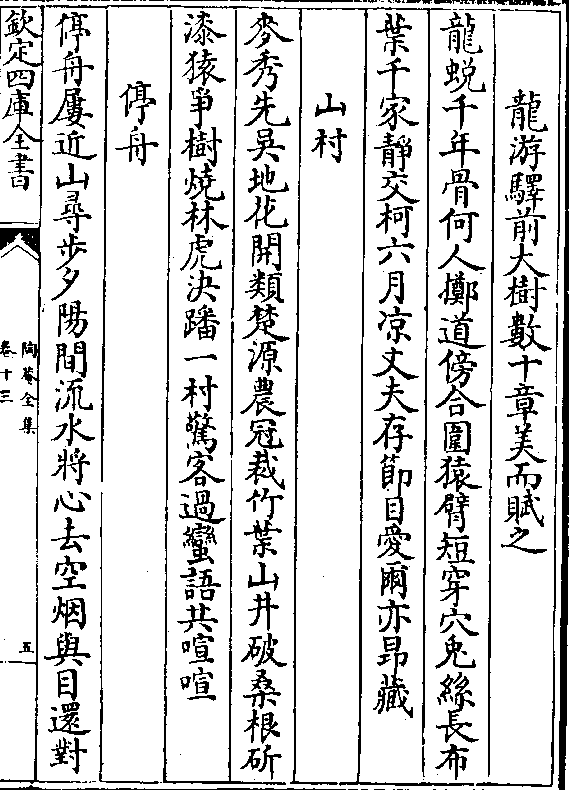 龍游驛前大樹數十章美而賦之
龍蜕千年骨何人擲道傍合圍猿臂短穿穴兎絲長布
葉千家靜交柯六月凉丈夫存節目愛爾亦昂藏
山村
麥秀先吳地花開類楚源農冠裁竹葉山井破桑根斫
漆猿爭樹燒林虎決蹯一村驚客過蠻語共喧喧
停舟
停舟屢近山尋步夕陽間流水將心去空烟與目還對
欽定四庫全書
陶菴全集
卷十三
五